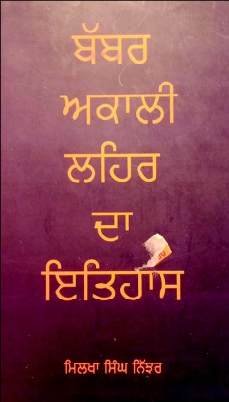 ਬੱਬਰ
ਅਕਾਲੀ
ਲਹਿਰ
ਦਾ
ਇਤਿਹਾਸ
ਮਿਲਖਾ ਸਿੰਘ ਨਿੱਝਰ